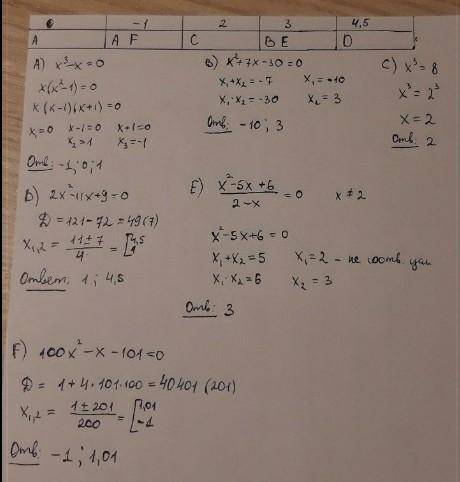 0 -1 2 3 4,5
A A F C B E D
A) x³-x=0
x(x²-1)=0
x(x-1)(x+1)=0
x₁=0 x-1=0 x+1=0
x₂=1 x₃=-1
Отв: -1; 0; 1
B) x²+7x-30=0
x₁+x₂=-7 x₁=-10
x₁·x₂=-30 x₂=3
Отв: -10; 3
C) x³=8
x³=2³
x=2
Отв: 2
D) 2x²-11x+9=0
D=121-72=49(7)
x₁,₂ = (11±7)/4 = [4,5 1
Ответ: 1; 4,5
E) (x²-5x+6)/(2-x) =0 x≠2
x²-5x+6=0
x₁+x₂=5 x₁=2 - не соотв. усл
x₁·x₂=6 x₂=3
Отв: 3
F) 100x²-x-101=0
D= 1+4·101·100=40401(201)
x₁,₂ = (1±201)/200 = [1,01 -1
Отв: -1; 1,01